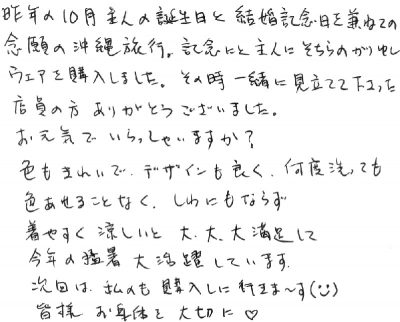 昨年の10月主人の誕生日と結婚記念日を兼ねての
念願の沖縄旅行。記念にと主人にそちらのかりゆし
ウェアを購入しました。その時一緒に見立てて下さった
店員の方ありがとうございました。
お元気でいらっしゃいますか?
色もきれいで、デザインも良く、何度洗っても
色あせることなく、しわにもならず
着やすく涼しいと大、大、大満足して
今年の猛暑大活躍しています。
次回は、私のも購入しに行きま〜す(☺)
皆様お身体を大切に♡